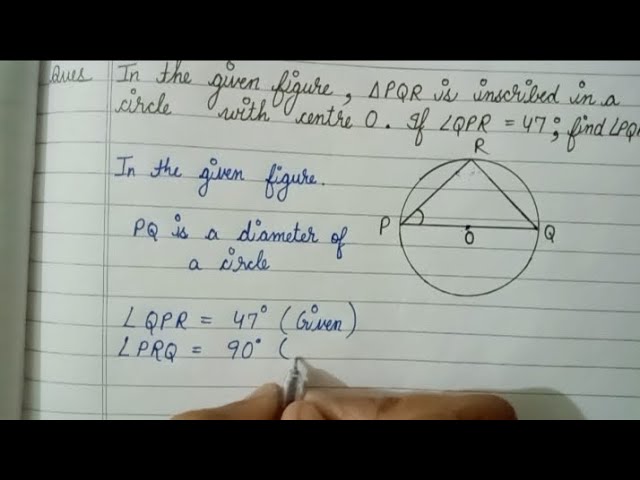 Ques In the given figure, ΔPQR is inscribed in a
circle with centre O. If ∠QPR = 47°, find ∠PQR
R
In the given figure.
P
O
Q
PQ is a diameter of
a circle
∠QPR = 47° (Given)
∠PRQ = 90° (